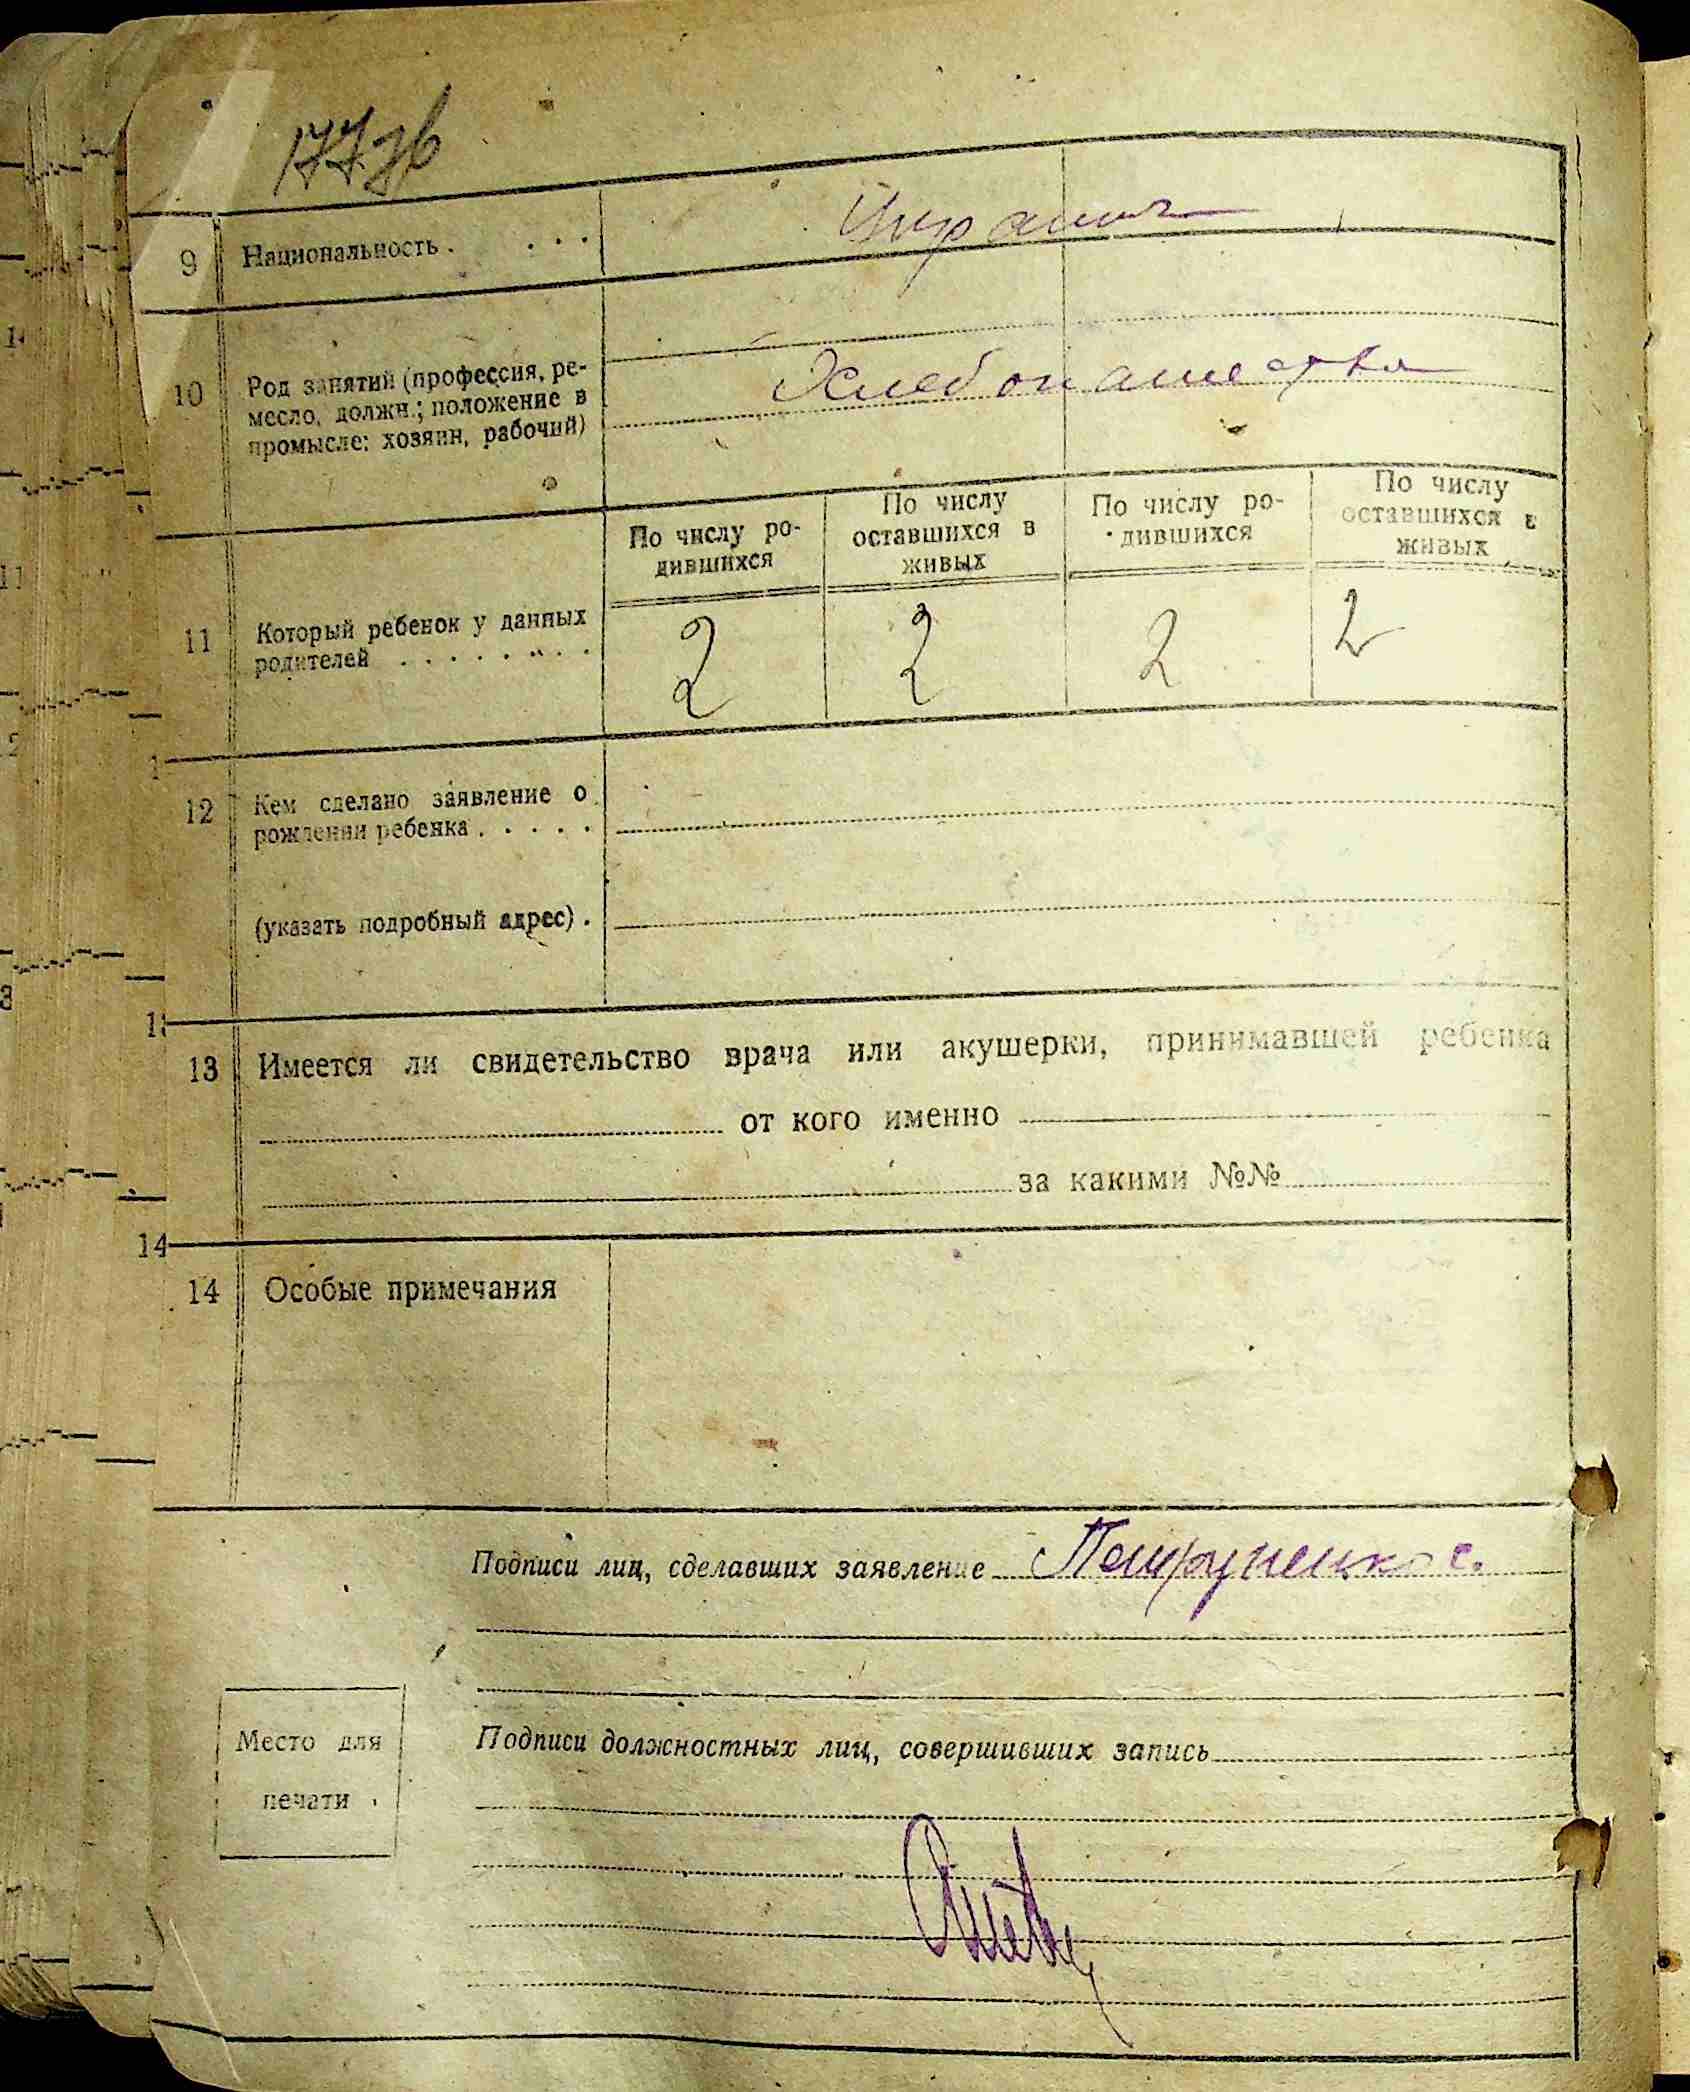 177 зв
9 Национальность . . . . Украин
10 Род занятий (профессия, ре-
месло, должн.; положение в
промысле: хозяин, рабочий)
Хлебопашество
По числу ро-
дившихся
По числу
оставшихся в
живых
По числу ро-
дившихся
По числу
оставшихся в
живых
11 Который ребенок у данных
родителей . . . . . . . .
2 2 2 2
12 Кем сделано заявление о
рождении ребенка . . . . .
(указать подробный адрес) .
13 Имеется ли свидетельство врача или акушерки, принимавшей ребенка
от кого именно
за какими №№
14 Особые примечания
Подписи лиц, сделавших заявление Петруненко с.
Место для
печати
Подписи должностных лиц, совершивших запись